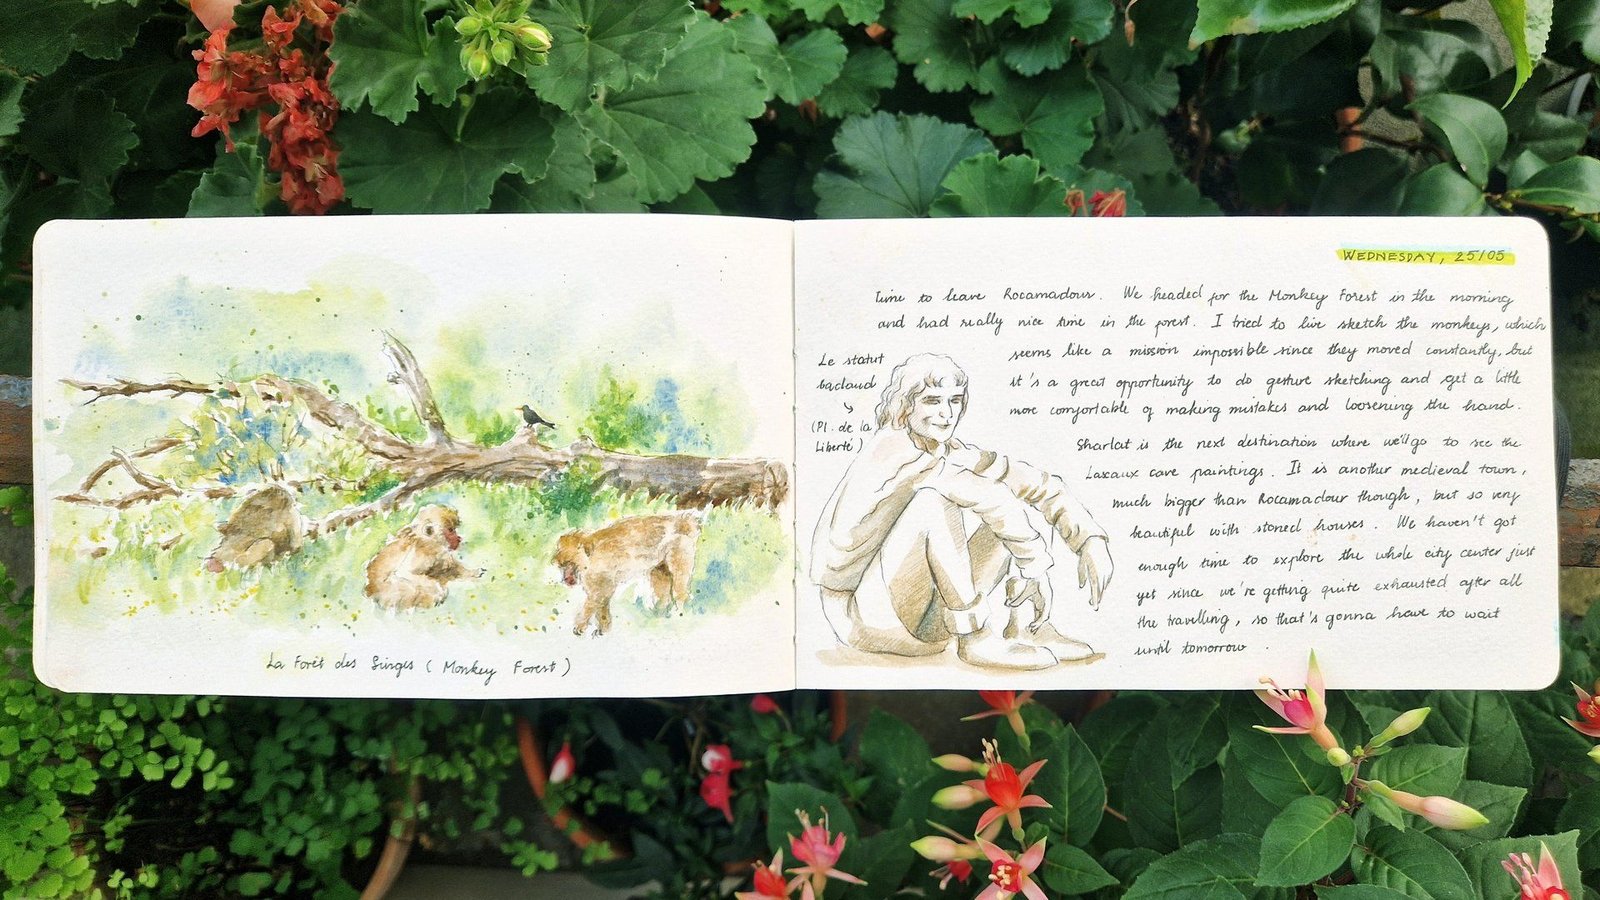 La Forêt des Singes (Monkey Forest)
WEDNESDAY, 25/05
Time to leave Rocamadour. We headed for the Monkey Forest in the morning
and had really nice time in the forest. I tried to live sketch the monkeys, which
seems like a mission impossible since they moved constantly, but
it's a great opportunity to do gesture sketching and get a little
more comfortable of making mistakes and loosening the hand.
Le statut
badaud
↘
(Pl. de la
Liberté)
Sharlat is the next destination where we'll go to see the
Lascaux cave paintings. It is another medieval town,
much bigger than Rocamadour though, but so very
beautiful with stoned houses. We haven't got
enough time to explore the whole city center just
yet since we're getting quite exhausted after all
the travelling, so that's gonna have to wait
until tomorrow.